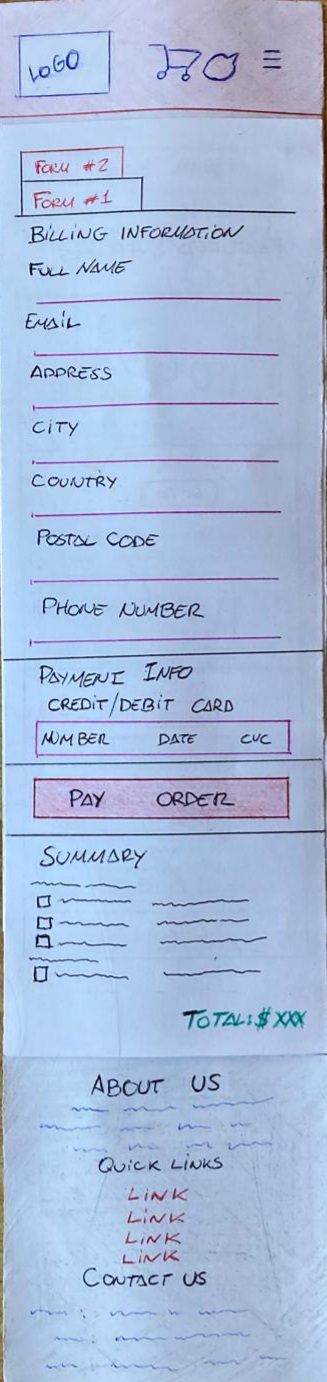 LOGO
FORM #2
FORM #1
BILLING INFORMATION
FULL NAME
EMAIL
ADDRESS
CITY
COUNTRY
POSTAL CODE
PHONE NUMBER
PAYMENT INFO
CREDIT/DEBIT CARD
NUMBER DATE CVC
PAY ORDER
SUMMARY
TOTAL: $ XXX
ABOUT US
QUICK LINKS
LINK
LINK
LINK
LINK
CONTACT US